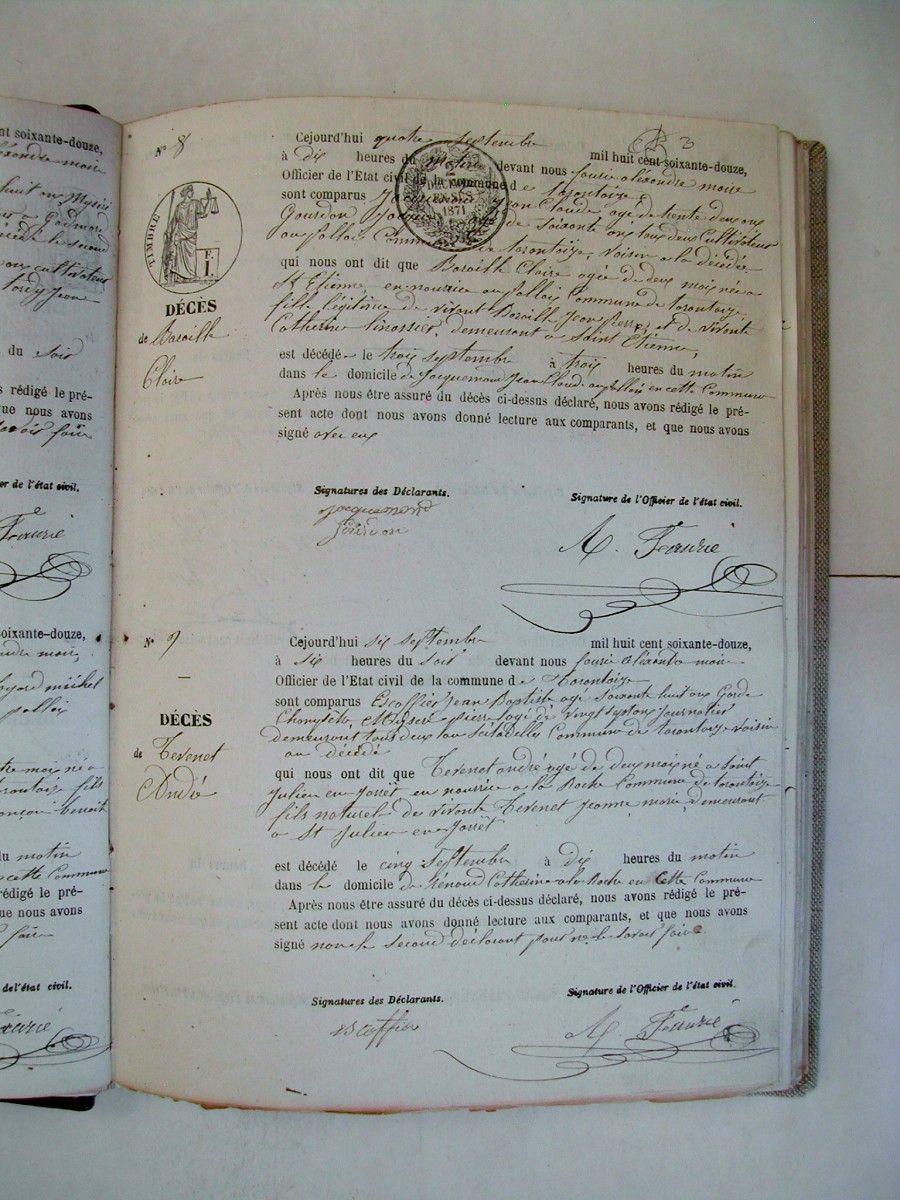 nt soixante-douze,
du soir
s rédigé le pré-
que nous avons
er de l'état civil.
soixante-douze,
du matin
cette Commune
rédigé le pré-
ue nous avons
del'état civil.
Nº 8
TIMBRE
F.
1.
DÉCÈS
de Baraille
Claire
Cejourd'hui quatre septembre mil huit cent soixante-douze,
à dix heures du matin devant nous alexandre maire
Officier de l'Etat civil de la commune de tarentaize
sont comparus Jacquemond Jean Claude age de trente deux ans
Gourdon Jacques age de Soixante ans tous deux Cultivateurs
au fallaix Commune de tarentaize, Voisin a la décédée
DÉCIMES
EN SUS
1871
qui nous ont dit que Baraille Claire agée de deux mois née a
St Etienne, en nourrice au fallaix Commune de tarentaize,
fille légitime de vivant Baraille Jean Pierre, et de vivante
Catherine demeurant a Saint Etienne,
est décédée le trois septembre à trois heures du matin
dans le domicile de Jacquemond Jean Claude au fallaix en cette Commune
Après nous être assuré du décès ci-dessus déclaré, nous avons rédigé le pré-
sent acte dont nous avons donné lecture aux comparants, et que nous avons
signé avec eux
Signatures des Déclarants.
Signature de l'Officier de l'état civil.
Jacquemond
Gourdon
Nº 9
DÉCÈS
de Tevenet
André
Cejourd'hui six septembre mil huit cent soixante-douze,
à six heures du soir devant nous alexandre maire
Officier de l'Etat civil de la commune de Tarentaize
sont comparus Escoffier Jean Baptiste agé Soixante huit ans Garde
Champêtre, pierre agé de vingt sept ans Journalier
demeurant tous deux au Commune de tarentaize voisin
au décédé
qui nous ont dit que Tevenet andré agé de deux mois né a Saint
Julien en Jarrêt en nourrice a la Roche Commune de tarentaize
fils naturel de vivante Tevenet Jeanne marie, demeurant
a St Julien en Jarrêt
est décédé le cinq Septembre à dix heures du matin
dans le domicile de Rénaud Catherine a la Roche en Cette Commune
Après nous être assuré du décès ci-dessus déclaré, nous avons rédigé le pré-
sent acte dont nous avons donné lecture aux comparants, et que nous avons
signé non le second déclarant pour ne le savoir faire
Signatures des Déclarants.
Signature de l'Officier de l'état civil.
Escoffier